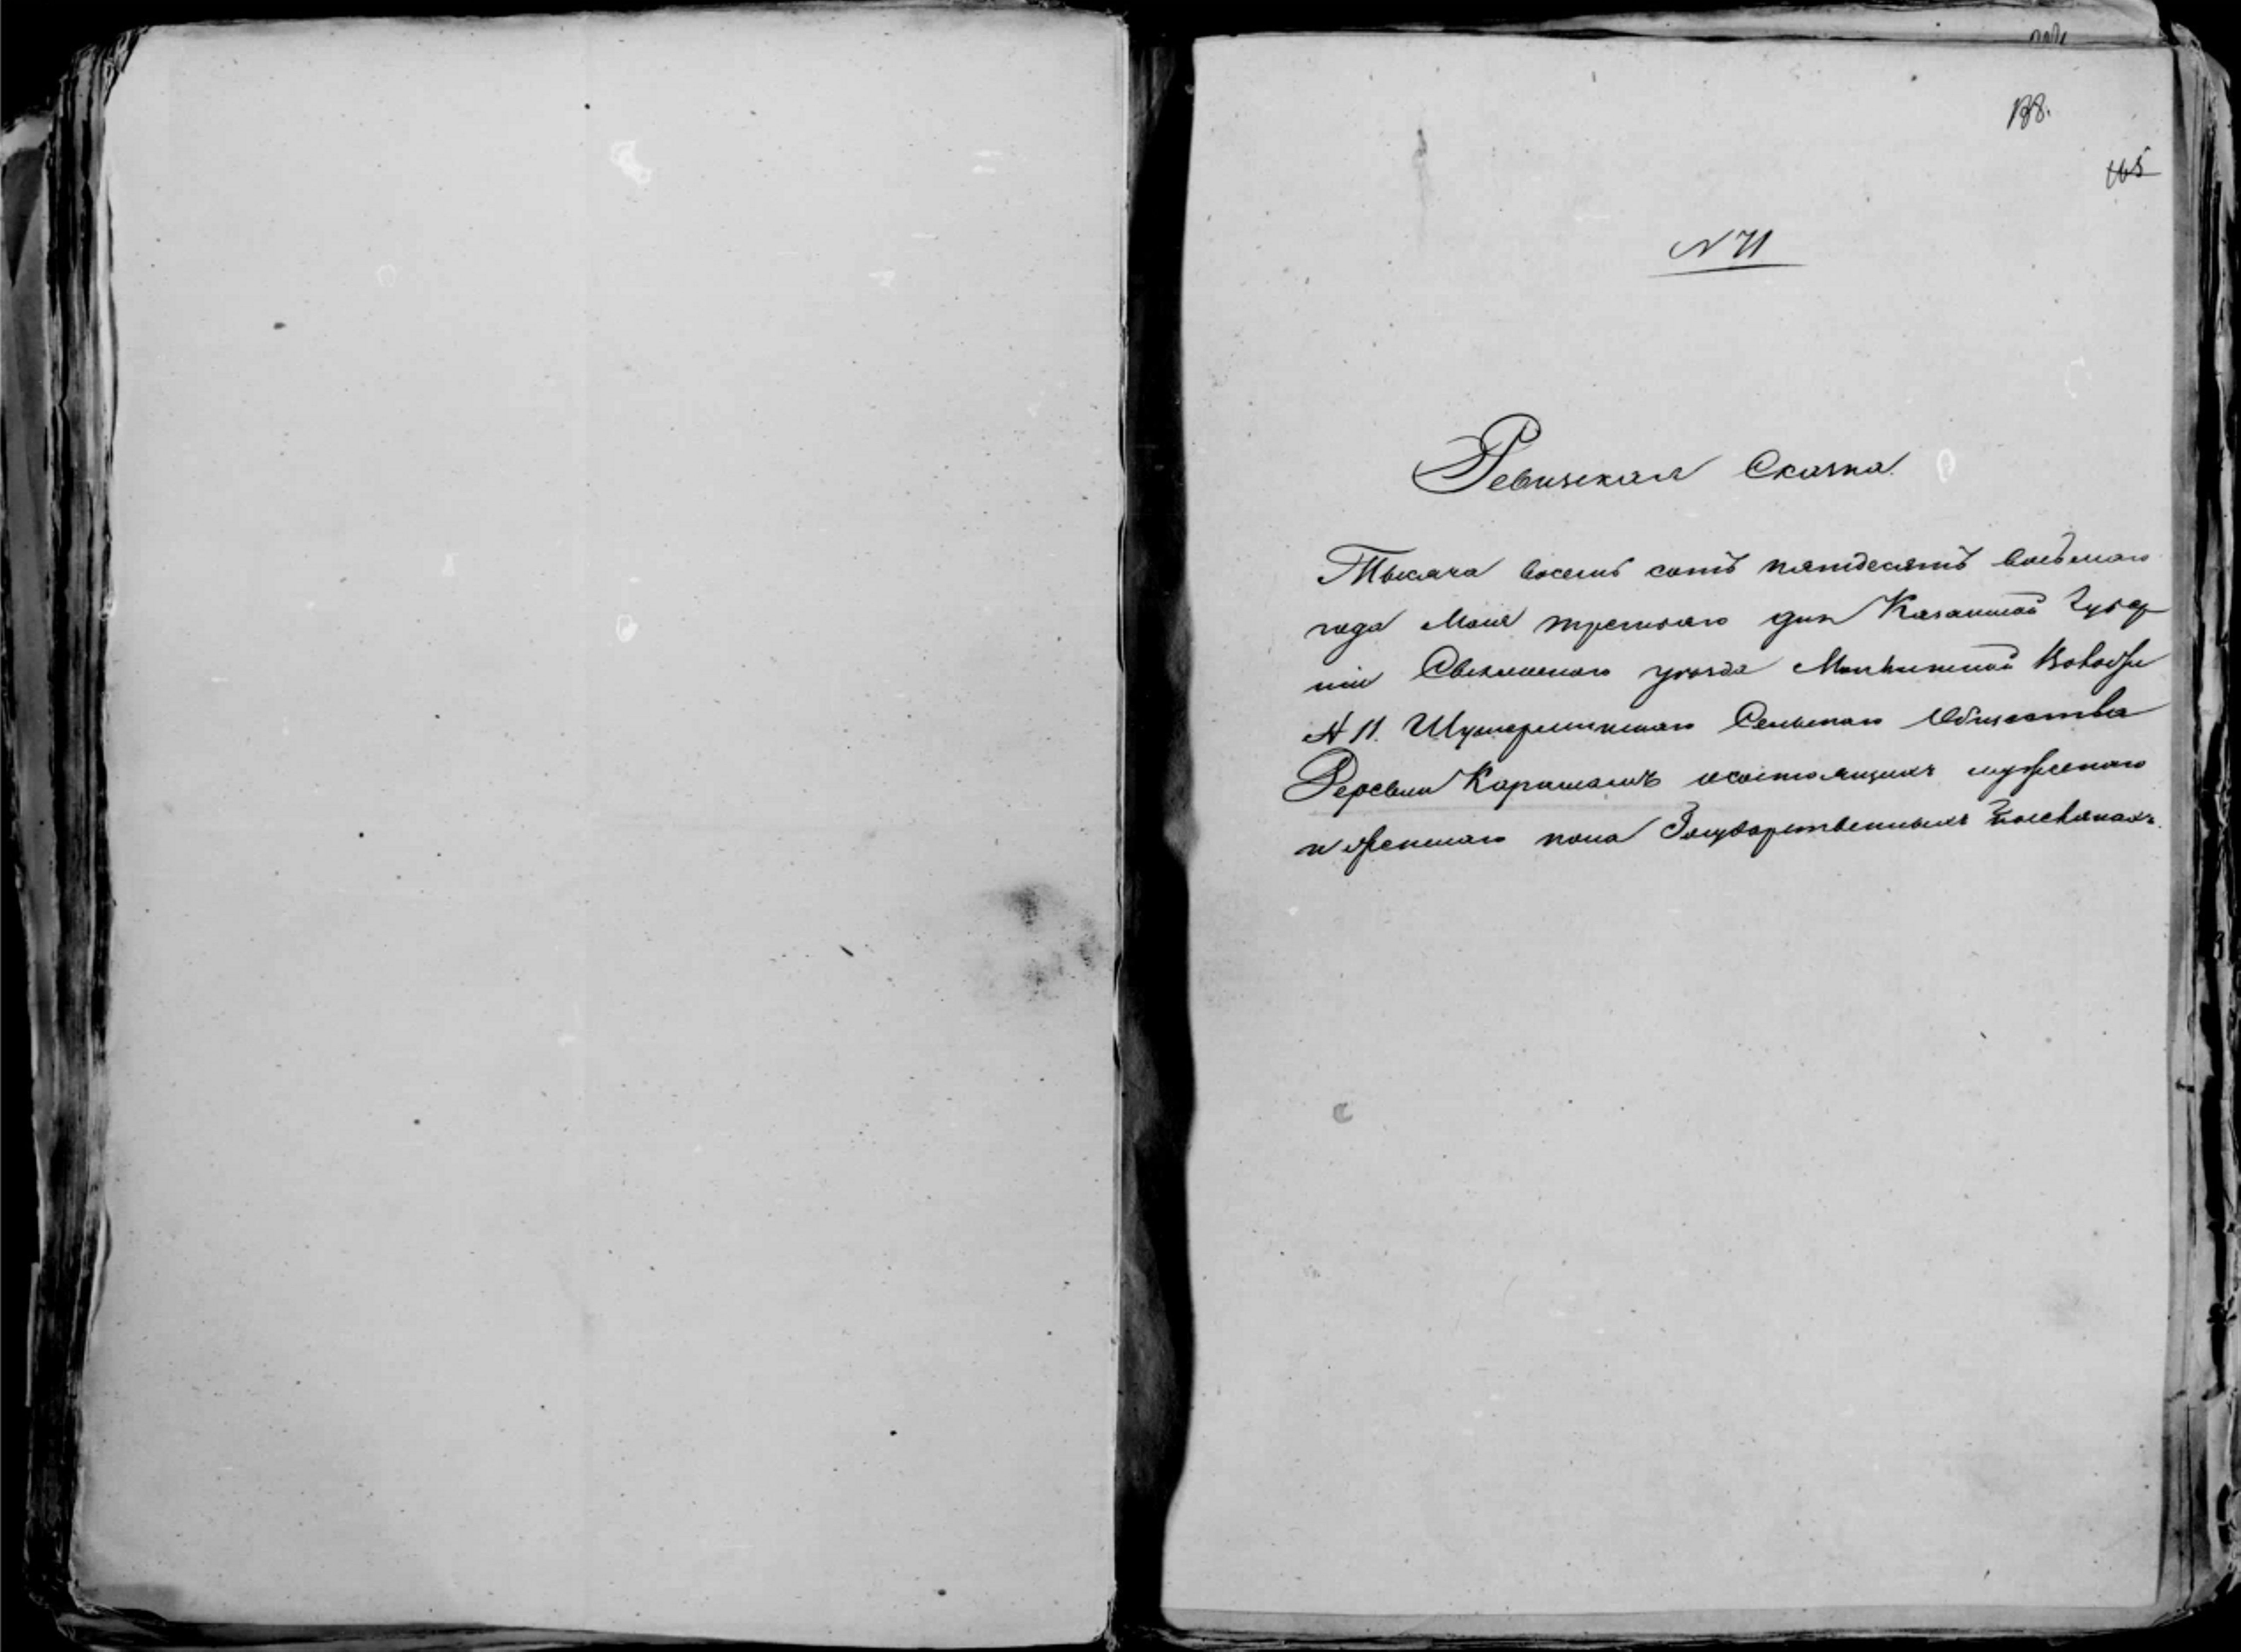 138.
165
N 71
Ревизская Сказка.
Тысяча восемь сотъ пятдесятъ восьмаго
года Маія третьяго дня Казанской Губер
ніи Свіяжскаго уѣзда Молькиевской Волости
N 11. Шутерминскаго Сельскаго Общества
Деревни Каришаихъ о состоящихъ мужескаго
и женскаго пола Государственныхъ